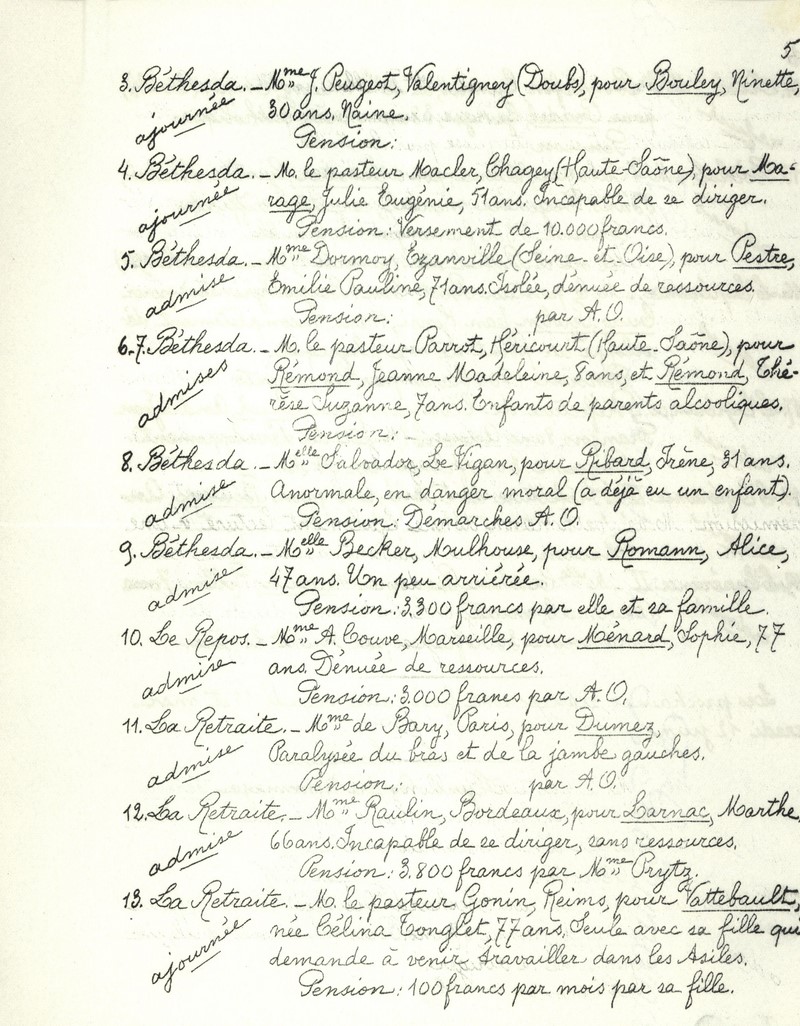 5
3. Béthesda. _ Mme J. Peugeot, Valentigney (Doubs), pour Bouley, Ninette,
ajournée
30 ans. Naine.
Pension:
4. Béthesda. _ M. le pasteur Macler, Chagey (Haute-Saône), pour Ma-
ajournée
rage, Julie Eugénie, 51 ans. Incapable de se diriger.
Pension: Versement de 10.000 francs.
5. Béthesda. _ Mme Dormoy, Ezanville (Seine-et-Oise), pour Pestre,
admise
Emilie Pauline, 71 ans. Isolée, dénuée de ressources.
Pension: par A.O.
6.-7. Béthesda. _ M. le pasteur Parrot, Héricourt (Haute-Saône), pour
admises
Rémond, Jeanne Madeleine, 8 ans, et Rémond, Thé-
rèse Suzanne, 7 ans. Enfants de parents alcooliques.
Pension: -
8. Béthesda. _ Melle Salvador, Le Vigan, pour Ribard, Irène, 31 ans.
admise
Anormale, en danger moral (à déjà eu un enfant).
Pension: Démarches A.O.
9. Béthesda. _ Melle Becker, Mulhouse, pour Romann, Alice,
admise
47 ans. Un peu arriérée.
Pension: 3,300 francs par elle et sa famille.
10. Le Repos. _ Mme A. Couve, Marseille, pour Ménard, Sophie, 77
admise
ans. Dénuée de ressources.
Pension: 3.000 francs par A.O.
11. La Retraite. _ Mme de Bary, Paris, pour Dumez,
admise
Paralysée du bras et de la jambe gauches.
Pension: par A.O.
12. La Retraite. _ Mme Raulin, Bordeaux, pour Larnac, Marthe,
admise
66 ans. Incapable de se diriger, sans ressources.
Pension: 3.800 francs par Mme Prytz.
13. La Retraite. _ M. le pasteur Gonin, Reims, pour Vattebault,
ajournée
née Célina Tonglet, 77 ans. Seule avec sa fille qui
demande à venir travailler dans les Asiles.
Pension: 100 francs par mois par sa fille.